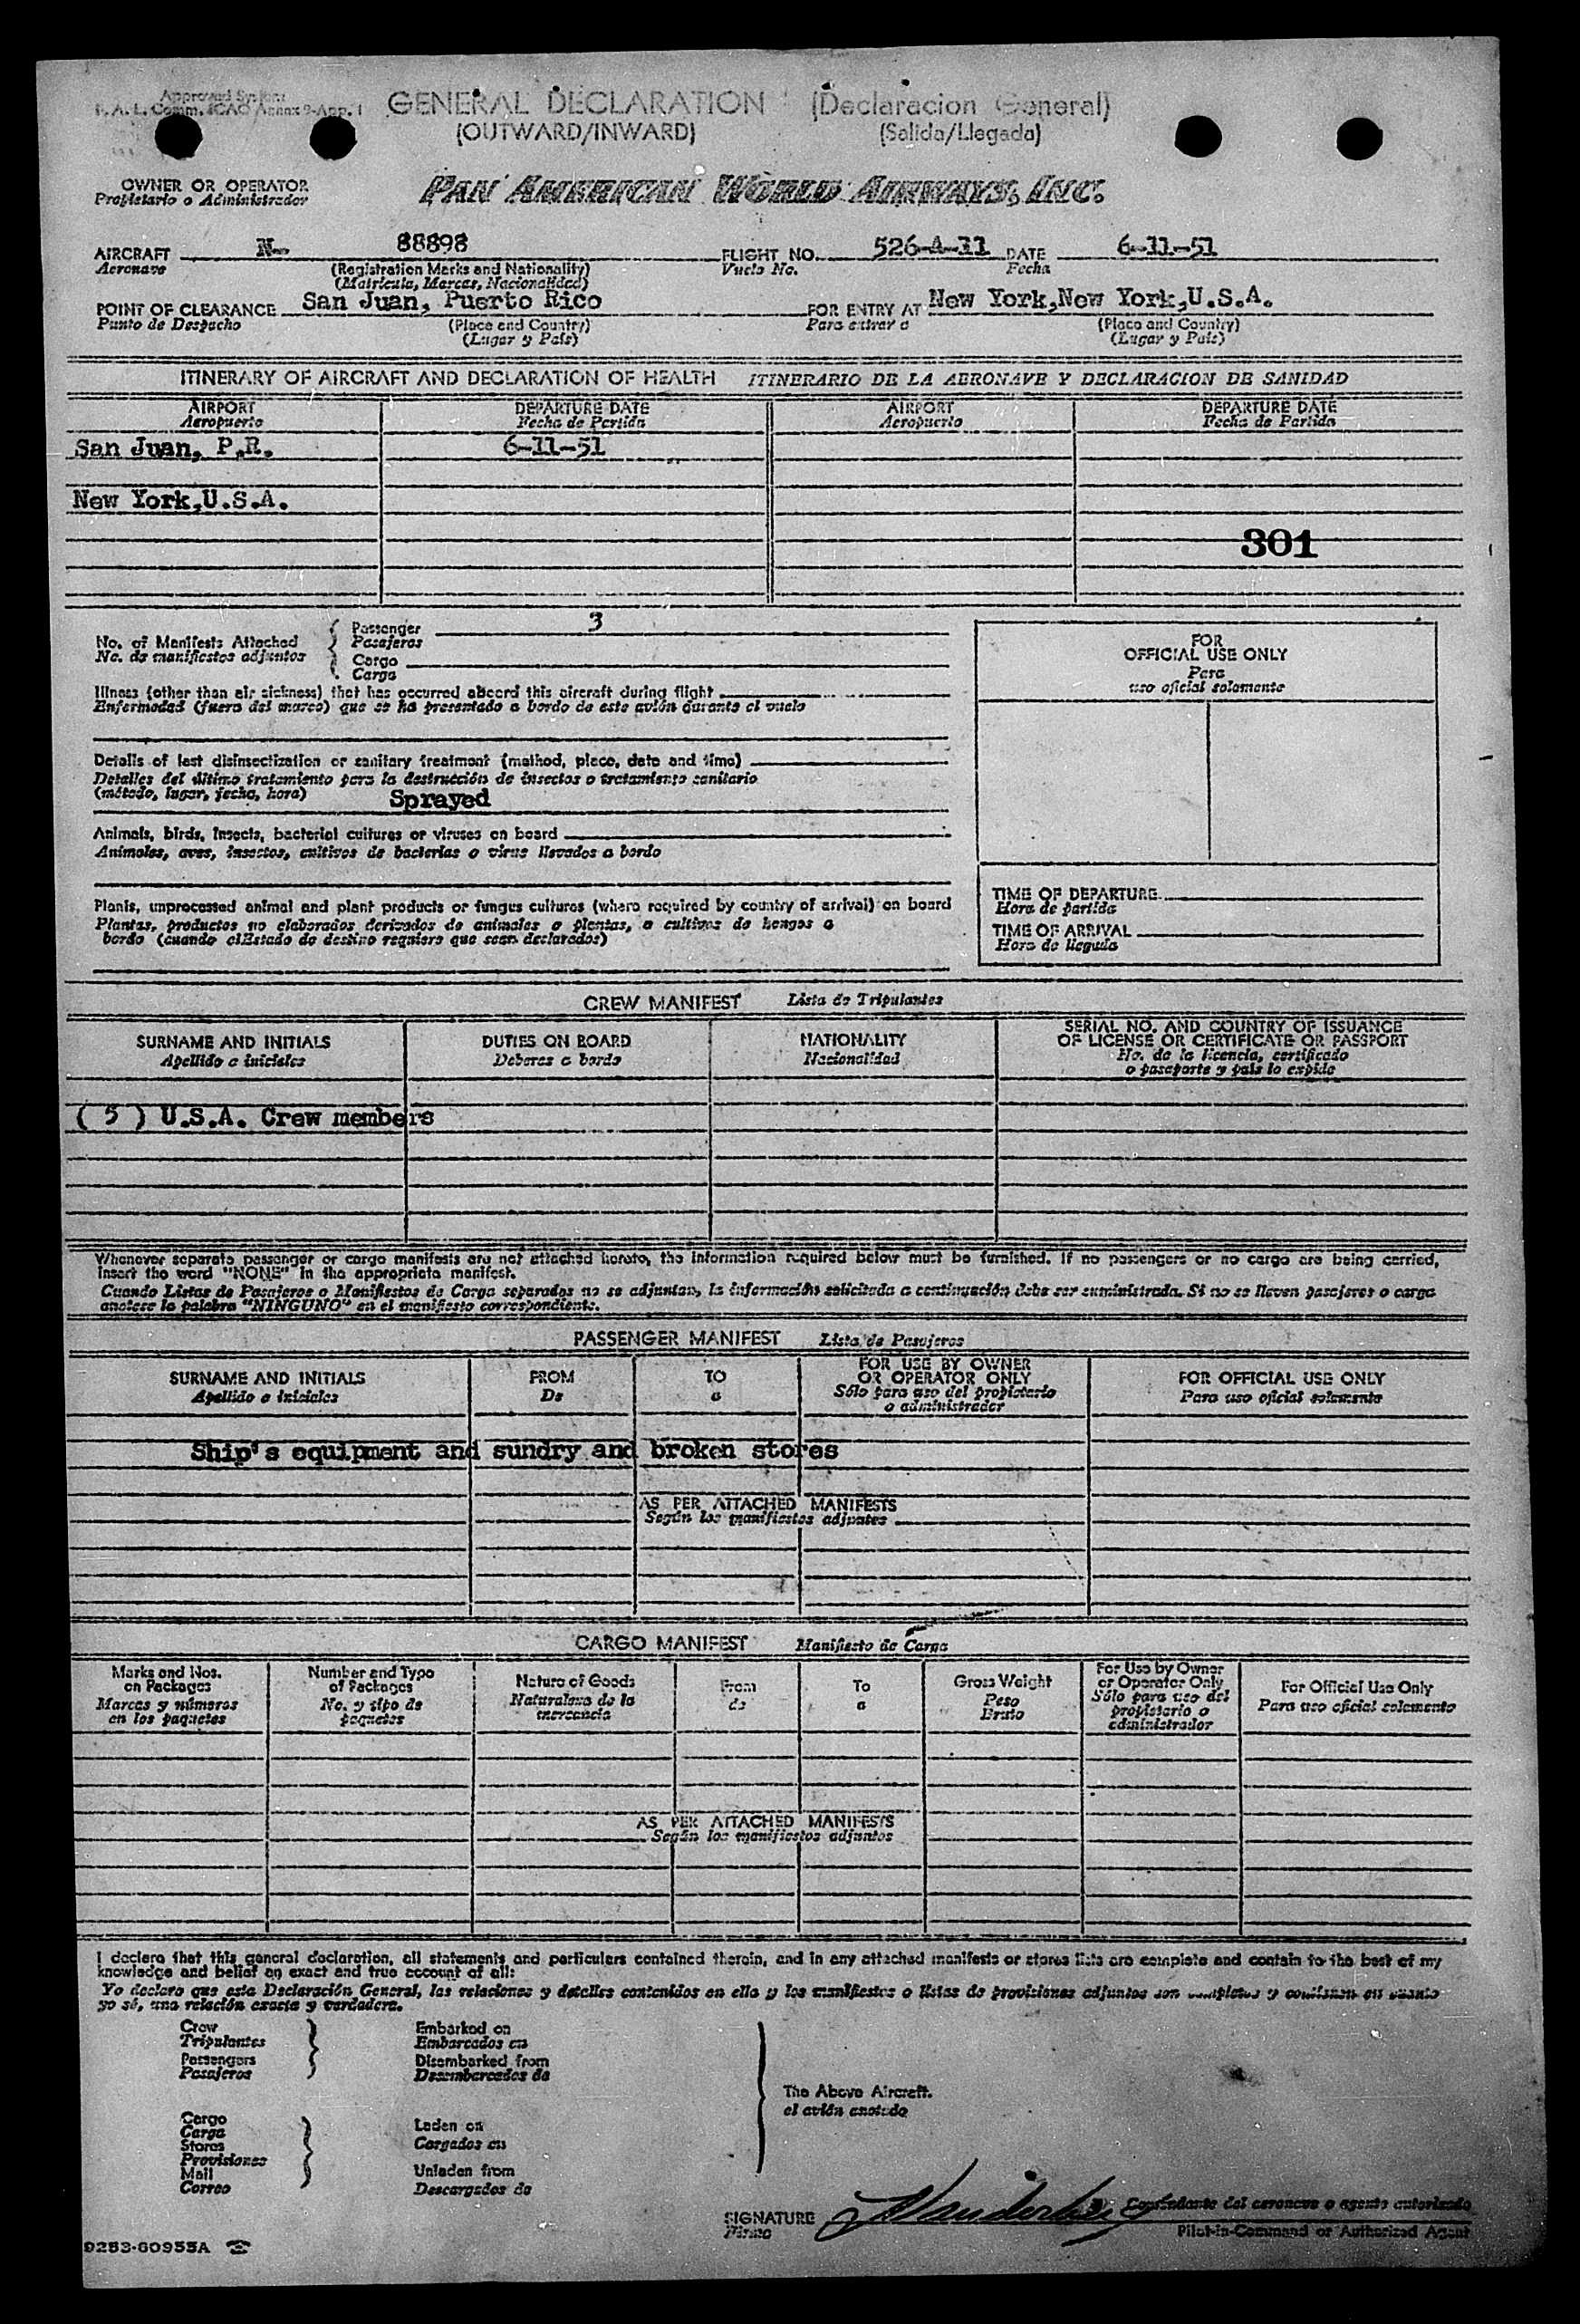 Approved System
F. A. L. Comm. ICAO Annex 9-App. 1
GENERAL DECLARATION (Declaracion General)
(OUTWARD/INWARD) (Salida/Llegada)
OWNER OR OPERATOR
Propietario o Administrador
PAN AMERICAN WORLD AIRWAYS, INC.
AIRCRAFT N- 88898 FLIGHT NO. 526-A-11 DATE 6-11-51
Aeronave (Registration Marks and Nationality) Vuelo No. Fecha
(Matricula, Marcas, Nacionalidad)
POINT OF CLEARANCE San Juan, Puerto Rico FOR ENTRY AT New York,New York,U.S.A.
Punto de Despacho (Place and Country) Para entrar a (Place and Country)
(Lugar y Pais) (Lugar y Pais)
ITINERARY OF AIRCRAFT AND DECLARATION OF HEALTH ITINERARIO DE LA AERONAVE Y DECLARACION DE SANIDAD
AIRPORT DEPARTURE DATE AIRPORT DEPARTURE DATE
Aeropuerto Fecha de Partida Aeropuerto Fecha de Partida
San Juan, P.R. 6-11-51
New York,U.S.A.
301
No. of Manifests Attached
No. de manifiestos adjuntos
Passenger 3
Pasajeros
Cargo
Carga
Illness (other than air sickness) that has occurred aboard this aircraft during flight
Enfermedad (fuera del mareo) que se ha presentado a bordo de este avión durante el vuelo
Details of last disinsectization or sanitary treatment (method, place, date and time)
Detalles del último tratamiento para la destrucción de insectos o tratamiento sanitario
(método, lugar, fecha, hora) Sprayed
Animals, birds, insects, bacterial cultures or viruses on board
Animales, aves, insectos, cultivos de bacterias o virus llevados a bordo
Plants, unprocessed animal and plant products or fungus cultures (where required by country of arrival) on board
Plantas, productos no elaborados derivados de animales o plantas, o cultivos de hongos a
bordo (cuando elEstado de destino requiere que sean declarados)
FOR
OFFICIAL USE ONLY
Para
uso oficial solamente
TIME OF DEPARTURE
Hora de partida
TIME OF ARRIVAL
Hora de llegada
CREW MANIFEST Lista de Tripulantes
SURNAME AND INITIALS DUTIES ON BOARD NATIONALITY SERIAL NO. AND COUNTRY OF ISSUANCE
OF LICENSE OR CERTIFICATE OR PASSPORT
Apellido e iniciales Deberes a bordo Nacionalidad No. de la licencia, certificado
o pasaporte y pais lo expide
( 5 ) U.S.A. Crew members
Whenever separate passenger or cargo manifests are not attached hereto, the information required below must be furnished. If no passengers or no cargo are being carried,
insert the word "NONE" in the appropriate manifest.
Cuando Listas de Pasajeros o Manifiestos de Carga separados no se adjuntan, la información solicitada a continuación debe ser suministrada. Si no se lleven pasajeros o carga
anotese la palabra "NINGUNO" en el manifiesto correspondiente.
PASSENGER MANIFEST Lista de Pasajeros
SURNAME AND INITIALS FROM TO FOR USE BY OWNER
OR OPERATOR ONLY FOR OFFICIAL USE ONLY
Apellido e iniciales De a Sólo para uso del propietario
o administrador Para uso oficial solamente
Ship's equipment and sundry and broken stores
AS PER ATTACHED MANIFESTS
Según los manifiestos adjuntos
CARGO MANIFEST Manifiesto de Carga
Marks and Nos.
on Packages
Marcas y números
en los paquetes
Number and Type
of Packages
No. y tipo de
paquetes
Nature of Goods
Naturaleza de la
mercancia
From
de
To
a
Gross Weight
Peso
Bruto
For Use by Owner
or Operator Only
Sólo para uso del
propietario o
administrador
For Official Use Only
Para uso oficial solamente
AS PER ATTACHED MANIFESTS
Según los manifiestos adjuntos
I declare that this general declaration, all statements and particulars contained therein, and in any attached manifests or stores lists are complete and contain to the best of my
knowledge and belief an exact and true account of all:
Yo declaro que esta Declaración General, las relaciones y detalles contenidos en ella y los manifiestos o listas de provisiones adjuntos son completos y contienen en cuanto
yo sé, una relación exacta y verdadera.
Crew
Tripulantes
Passengers
Pasajeros
Embarked on
Embarcados en
Disembarked from
Desembarcados de
The Above Aircraft.
el avión anotado
Cargo
Carga
Stores
Provisiones
Mail
Correo
Laden on
Cargados en
Unladen from
Descargados de
SIGNATURE
Firma
Comandante del aeronave o agente autorizado
Pilot-in-Command or Authorized Agent
9283-60955A